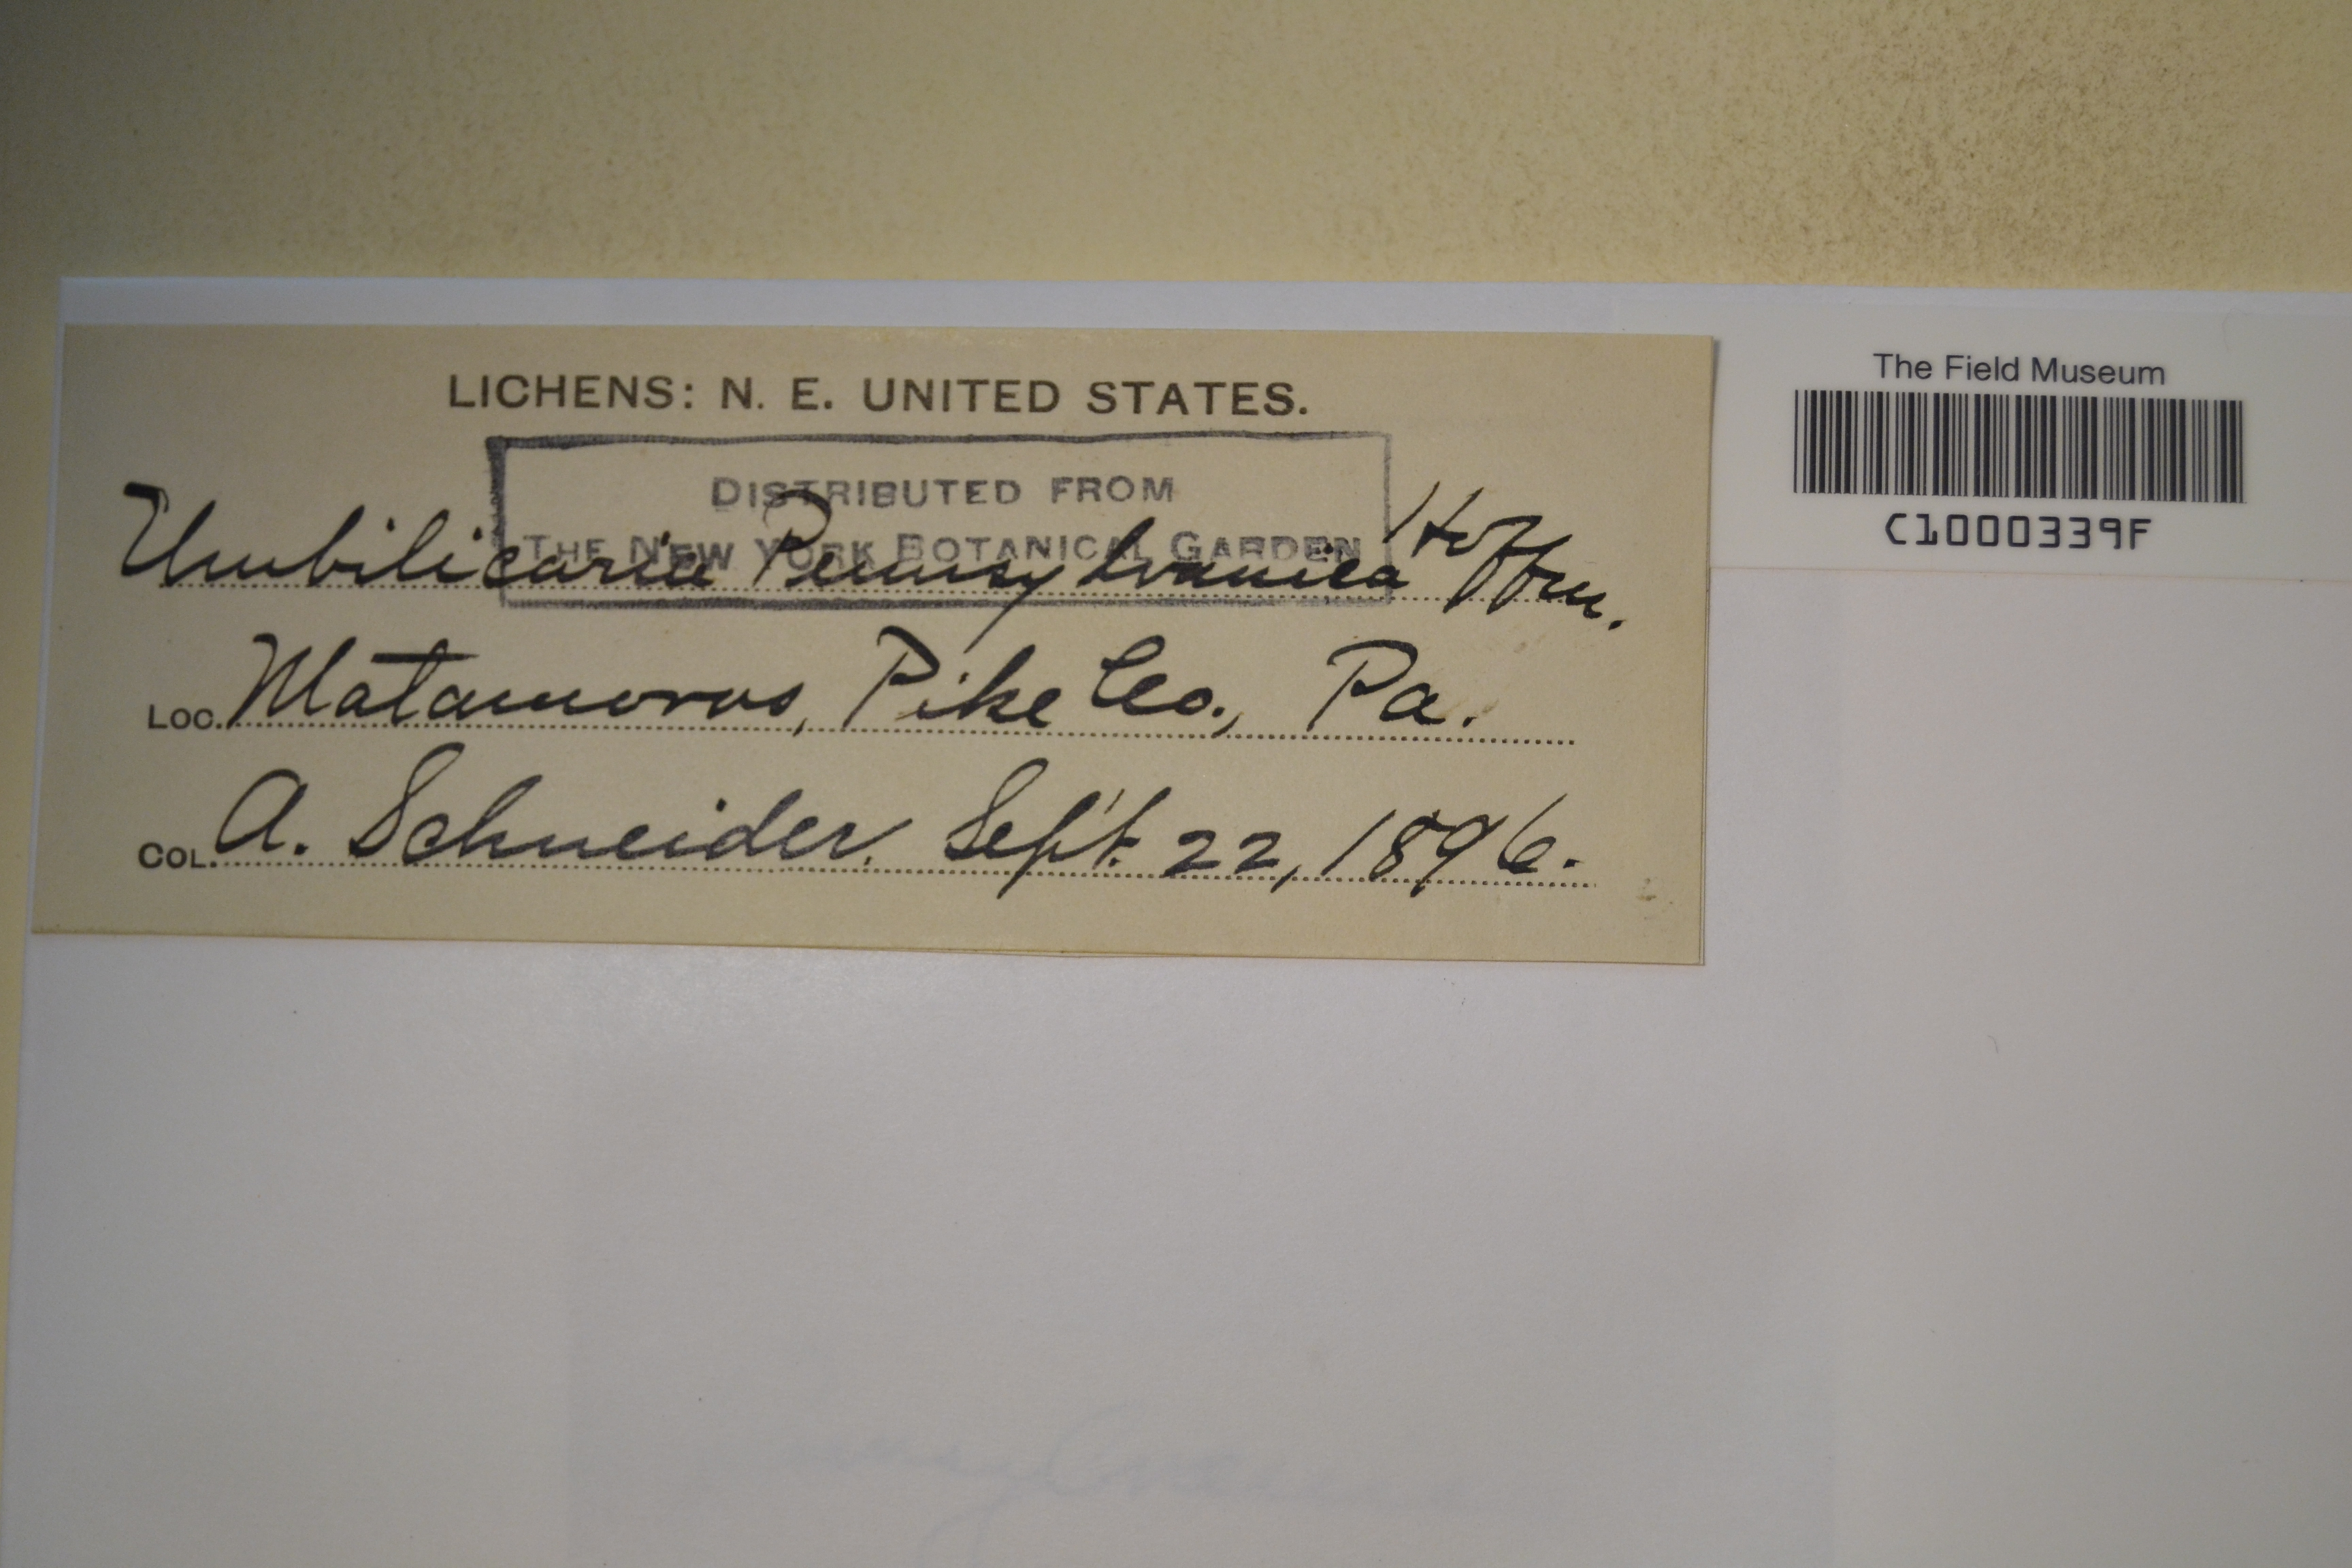 LICHENS: N. E. UNITED STATES.
DISTRIBUTED FROM
THE NEW YORK BOTANICAL GARDEN
Umbilicaria Pennsylvanica Hoffm.
LOC. Matamoras, Pike Co., Pa.
COL. A. Schneider. Sept. 22, 1896.
The Field Museum
C1000339F